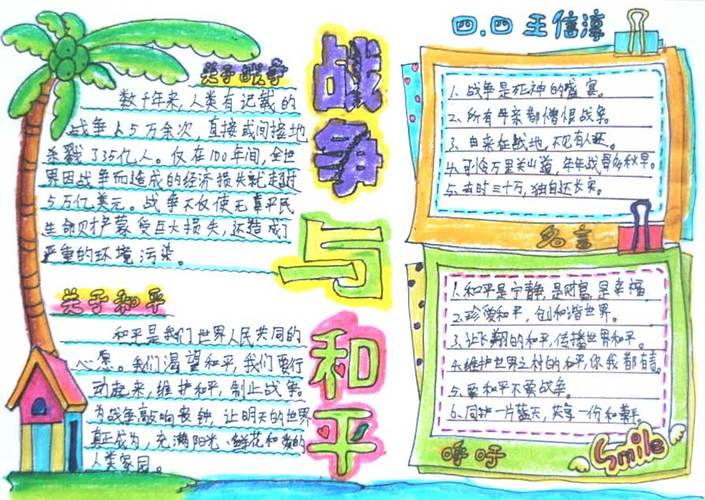 四.四 王信淳
战争与和平
关于战争
数千年来,人类有记载的
战争上5万余次,直接或间接地
杀戮了35亿人。仅在100年间,全世
界因战争而造成的经济损失就超过
5万亿美元。战争不仅使无辜平民
生命财产蒙受巨大损失,还造成了
严重的环境污染。
关于和平
和平是我们世界人民共同的
心愿。我们渴望和平,我们要行
动起来,维护和平,制止战争。
为战争敲响丧钟,让明天的世界
真正成为,充满阳光、鲜花和爱的
人类家园。
1.战争是死神的盛宴。
2.所有母亲都憎恨战争。
3.由来征战地,不见有人还。
4.可怜万里关山道,年年战骨多秋草。
5.去时三十万,独自还长安。
名言
1.和平是宁静,是财富,是幸福
2.珍爱和平,创和谐世界。
3.让飞翔的和平,传播世界和平。
4.维护世界之村的和平,你我都有责
5.要和平不要战争。
6.同护一片蓝天,共享一份和平
呼吁
Smile